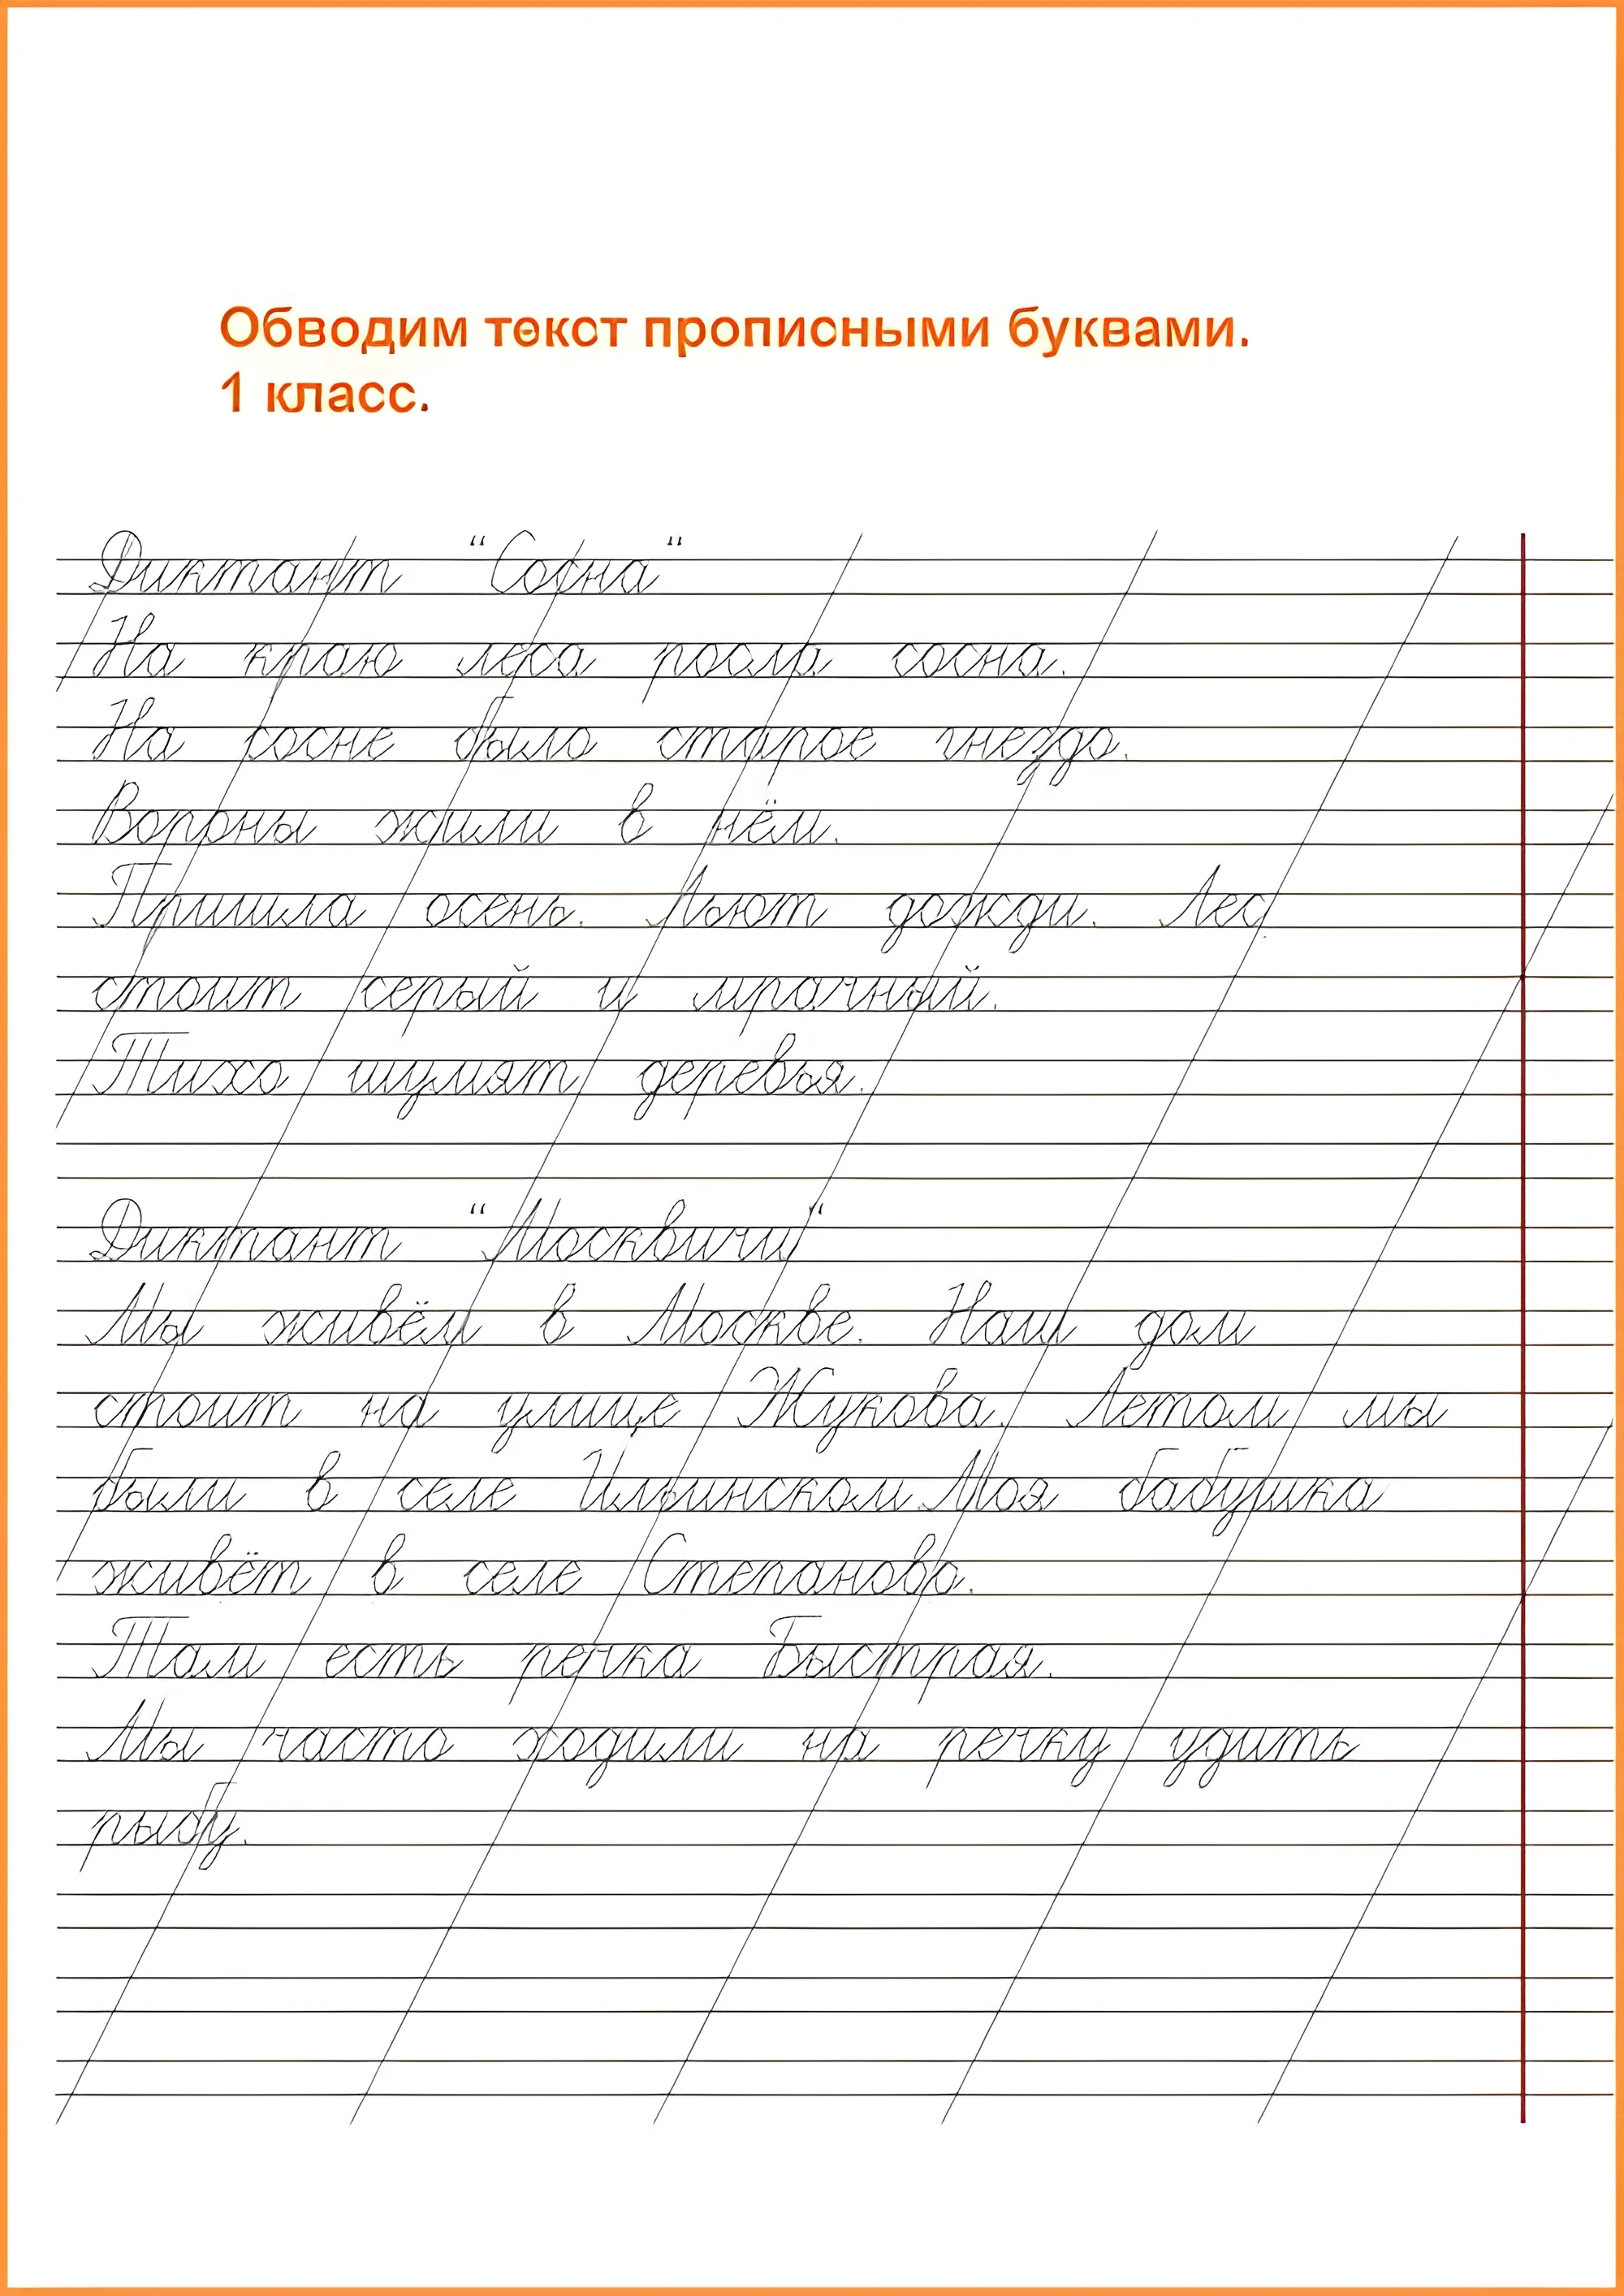 Обводим текст прописными буквами.
1 класс.
Диктант “Сосна“
На краю леса росла сосна.
На сосне было старое гнездо.
Вороны жили в нём.
Пришла осень. Льют дожди. Лес
стоит серый и мрачный.
Тихо шумят деревья.
Диктант “Москвичи“
Мы живём в Москве. Наш дом
стоит на улице Жукова. Летом мы
были в селе Ильинском.Моя бабушка
живёт в селе Степаново.
Там есть речка Быстрая.
Мы часто ходили на речку удить
рыбу.